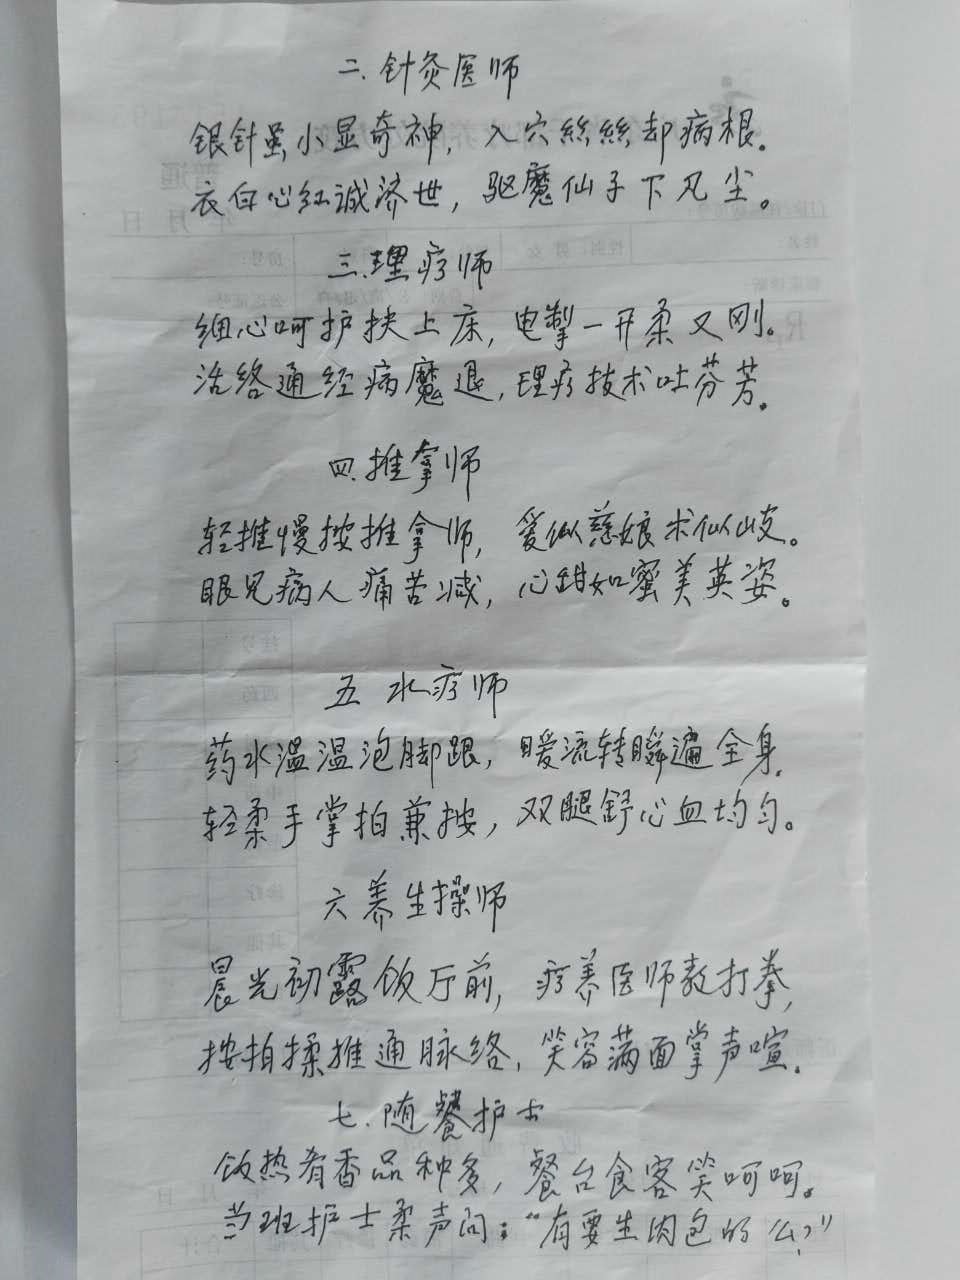 二.针灸医师
银针虽小显奇神，入穴丝丝却病根。
衣白心红诚济世，驱魔仙子下凡尘。
三.理疗师
细心呵护扶上床，电掣一开柔又刚。
活络通经病魔退，理疗技术吐芬芳。
四.推拿师
轻推慢按推拿师，爱似慈娘术似岐。
眼见病人痛苦减，心甜如蜜美英姿。
五 水疗师
药水温温泡脚跟，暖流转瞬遍全身.
轻柔手掌拍兼按，双腿舒心血均匀。
六养生操师
晨光初露饭厅前，疗养医师教打拳，
按拍揉推通脉络，笑容满面掌声喧.
七.随餐护士
饭热肴香品种多，餐台食客笑呵呵。
当班护士柔声问："有要生肉包的么?"
普通
年 月 日